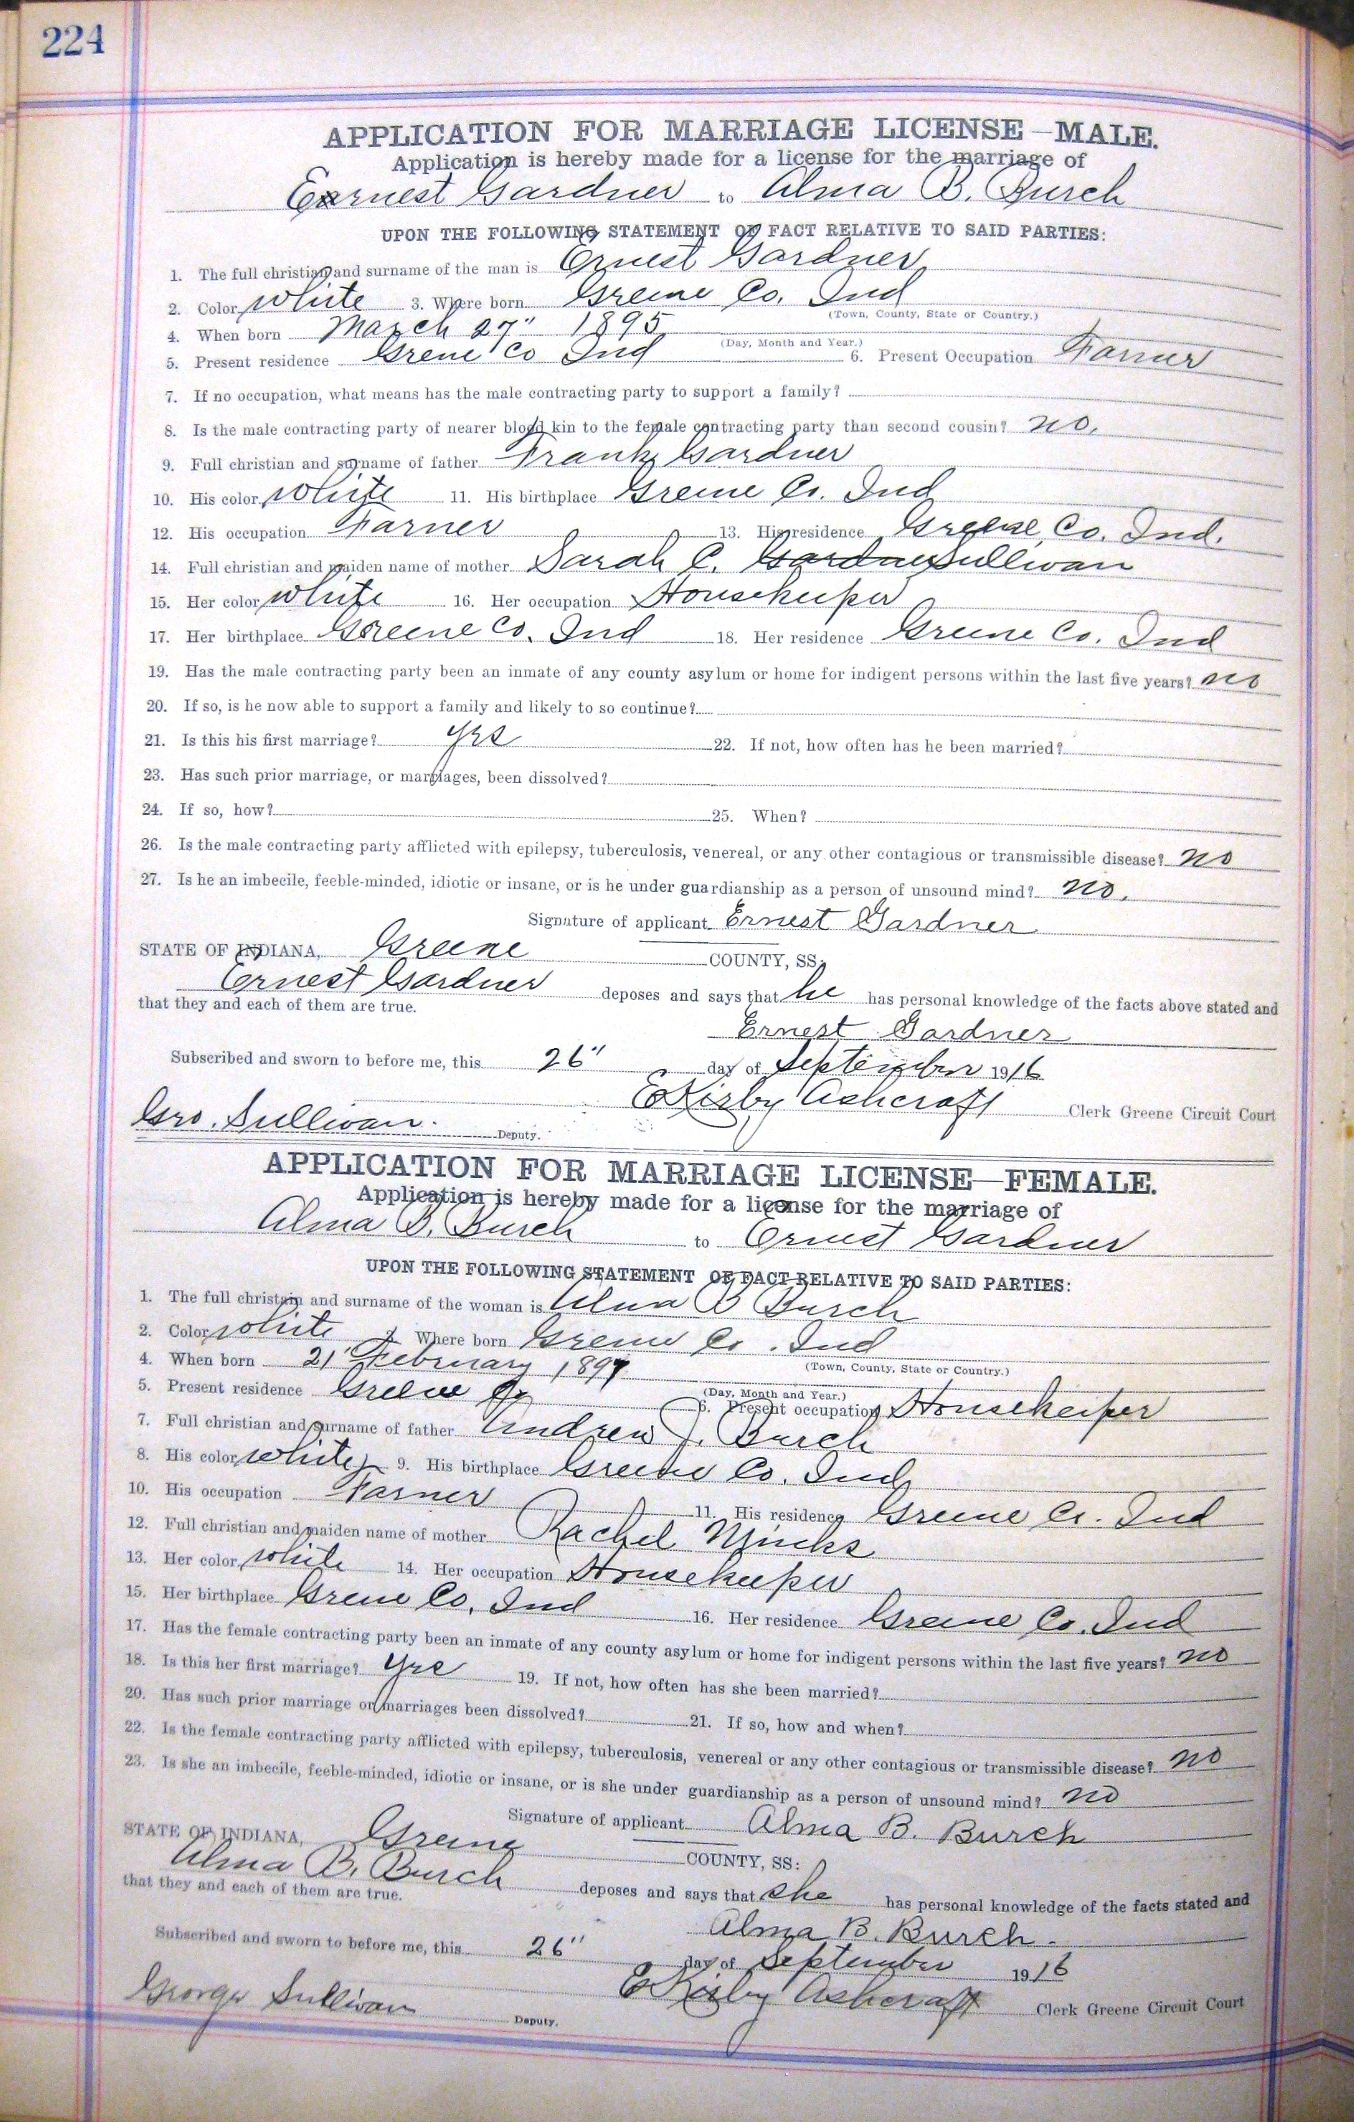 224
APPLICATION FOR MARRIAGE LICENSE—MALE.
Application is hereby made for a license for the marriage of
Earnest Gardner to Alma B. Burch
UPON THE FOLLOWING STATEMENT OF FACT RELATIVE TO SAID PARTIES:
1. The full christian and surname of the man is Ernest Gardner
2. Color white 3. Where born Greene Co. Ind
(Town, County, State or Country.)
4. When born March 27" 1895
(Day, Month and Year.)
5. Present residence Grene Co Ind 6. Present Occupation Farmer
7. If no occupation, what means has the male contracting party to support a family?
8. Is the male contracting party of nearer blood kin to the female contracting party than second cousin? no.
9. Full christian and surname of father Frank Gardner
10. His color white 11. His birthplace Greene Co. Ind
12. His occupation Farmer 13. His residence Greene Co. Ind.
14. Full christian and maiden name of mother Sarah C. Gardner Sullivan
15. Her color white 16. Her occupation Housekeeper
17. Her birthplace Greene Co. Ind 18. Her residence Greene Co. Ind
19. Has the male contracting party been an inmate of any county asylum or home for indigent persons within the last five years? no
20. If so, is he now able to support a family and likely to so continue?
21. Is this his first marriage? yes 22. If not, how often has he been married?
23. Has such prior marriage, or marriages, been dissolved?
24. If so, how? 25. When?
26. Is the male contracting party afflicted with epilepsy, tuberculosis, venereal, or any other contagious or transmissible disease? no
27. Is he an imbecile, feeble-minded, idiotic or insane, or is he under guardianship as a person of unsound mind? no.
Signature of applicant Ernest Gardner
STATE OF INDIANA, Greene COUNTY, SS:
Ernest Gardner deposes and says that he has personal knowledge of the facts above stated and
that they and each of them are true.
Ernest Gardner
Subscribed and sworn to before me, this 26" day of September 1916
E Kirby Ashcraft Clerk Greene Circuit Court
Geo. Sullivan. Deputy.
APPLICATION FOR MARRIAGE LICENSE—FEMALE.
Application is hereby made for a license for the marriage of
Alma B. Burch to Ernest Gardner
UPON THE FOLLOWING STATEMENT OF FACT RELATIVE TO SAID PARTIES:
1. The full christain and surname of the woman is Alma B Burch
2. Color white 3. Where born Greene Co. Ind
(Town, County, State or Country.)
4. When born 21" February 1897
(Day, Month and Year.)
5. Present residence Greene Co 6. Present occupation Housekeeper
7. Full christian and surname of father Andrew J. Burch
8. His color white 9. His birthplace Greene Co. Ind
10. His occupation Farmer 11. His residence Greene Co. Ind
12. Full christian and maiden name of mother Rachel Minks
13. Her color white 14. Her occupation Housekeeper
15. Her birthplace Greene Co. Ind 16. Her residence Greene Co. Ind
17. Has the female contracting party been an inmate of any county asylum or home for indigent persons within the last five years? no
18. Is this her first marriage? yes 19. If not, how often has she been married?
20. Has such prior marriage or marriages been dissolved? 21. If so, how and when?
22. Is the female contracting party afflicted with epilepsy, tuberculosis, venereal or any other contagious or transmissible disease? no
23. Is she an imbecile, feeble-minded, idiotic or insane, or is she under guardianship as a person of unsound mind? no
Signature of applicant Alma B. Burch
STATE OF INDIANA, Greene COUNTY, SS:
Alma B. Burch deposes and says that she has personal knowledge of the facts stated and
that they and each of them are true.
Alma B. Burch.
Subscribed and sworn to before me, this 26" day of September 1916
E Kirby Ashcraft Clerk Greene Circuit Court
George Sullivan Deputy.